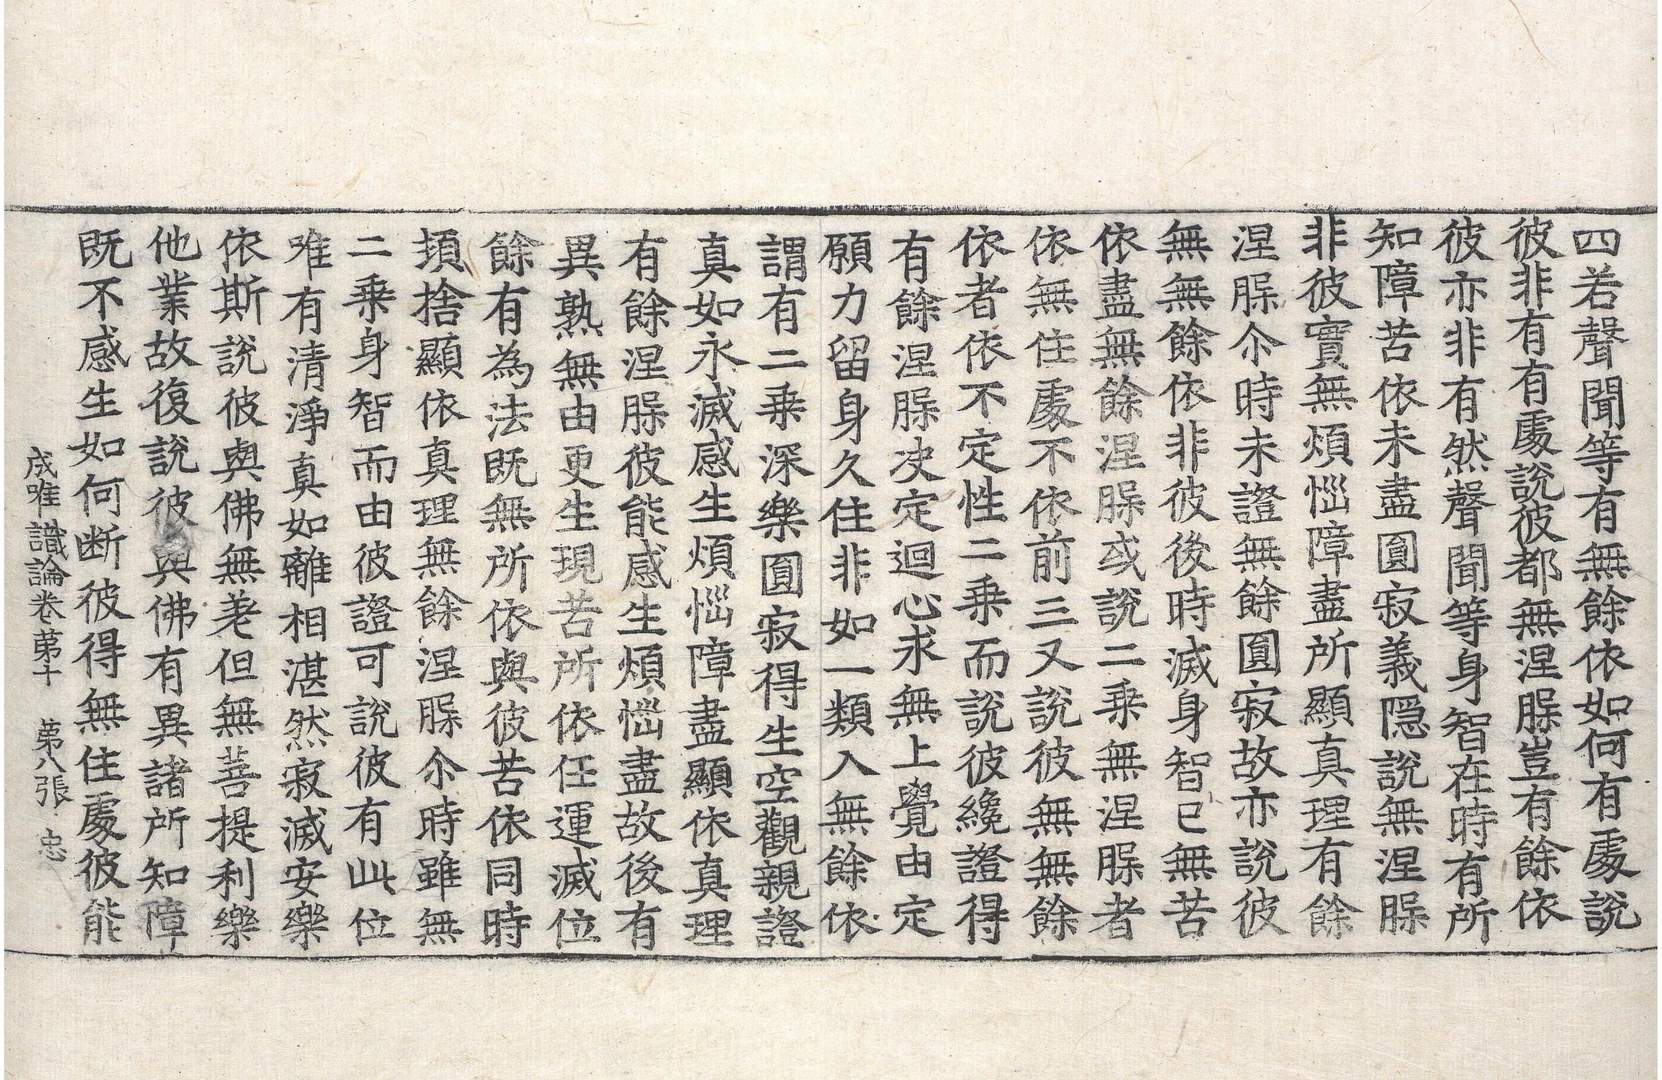 四若聲聞等有無餘依如何有處說
彼非有有處說彼都無涅槃豈有餘依
彼亦非有然聲聞等身智在時有所
知障苦依未盡圓寂義隱說無涅槃
非彼實無煩惱障盡所顯真理有餘
涅槃尒時未證無餘圓寂故亦說彼
無無餘依非彼後時滅身智已無苦
依盡無餘涅槃或說二乘無涅槃者
依無住處不依前三又說彼無無餘
依者依不定性二乘而說彼纔證得
有餘涅槃决定迴心求無上覺由定
願力留身久住非如一類入無餘依
謂有二乘深樂圓寂得生空觀親證
真如永滅感生煩惱障盡顯依真理
有餘涅槃彼能感生煩惱盡故後有
異熟無由更生現苦所依任運滅位
餘有為法既無所依與彼苦依同時
頓捨顯依真理無餘涅槃尒時雖無
二乘身智而由彼證可說彼有此位
唯有清淨真如離相湛然寂滅安樂
依斯說彼與佛無差但無菩提利樂
他業故復說彼與佛有異諸所知障
既不感生如何断彼得無住處彼能
成唯識論卷苐十 苐八張 忠